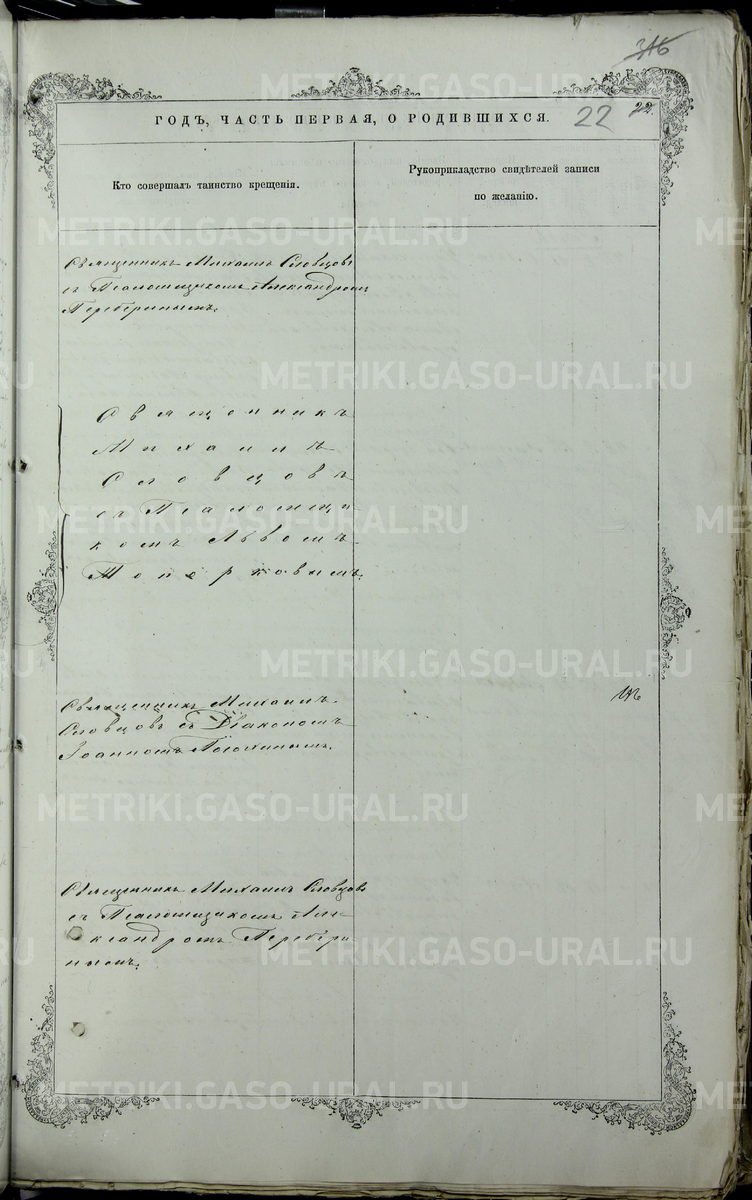 316
22
22.
ГОДЪ, ЧАСТЬ ПЕРВАЯ, О РОДИВШИХСЯ.
Кто совершалъ таинство крещенія.
Рукоприкладство свидѣтелей записи
по желанію.
Священникъ Михаилъ Словцовъ
съ Псаломщикомъ Александромъ
Переберинымъ.
Священникъ
Михаилъ
Словцовъ
съ Псаломщи-
комъ Львомъ
Топорковымъ.
Священникъ Михаилъ
Словцовъ съ Діакономъ
Іоанномъ
Священникъ Михаилъ Словцовъ
съ Псаломщикомъ Але-
ксандромъ Перебери-
нымъ.
METRIKI.GASO-URAL.RU